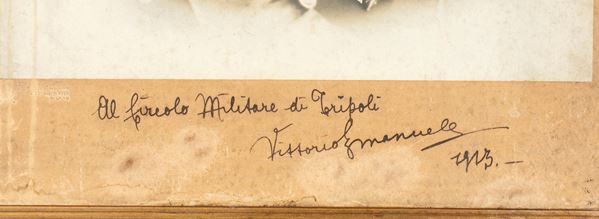 Al Circolo Militare di Tripoli
Vittorio Emanuele
1913.–